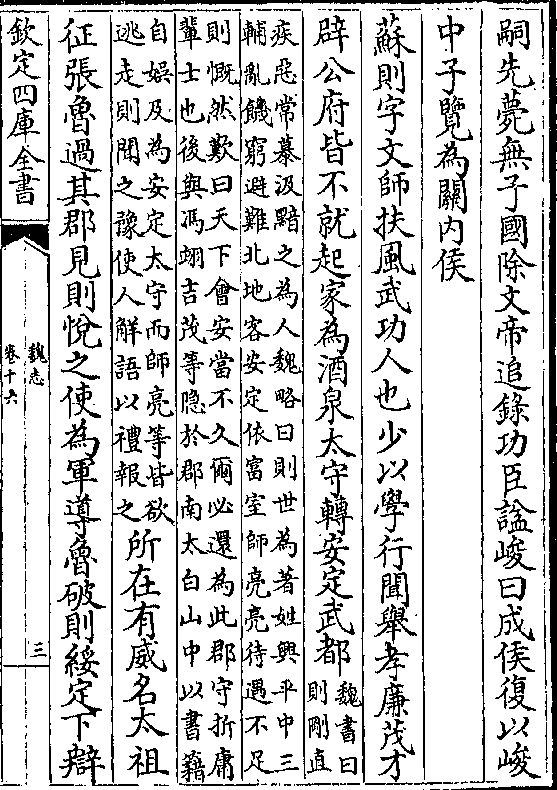 嗣先薨無子國除文帝追錄功臣諡峻曰成侯復以峻
中子覽為關內侯
蘇則字文師扶風武功人也少以學行聞舉孝廉茂才
辟公府皆不就起家為酒泉太守轉安定武都
魏書曰
則剛直
疾惡常慕汲黯之為人魏略曰則世為著姓興平中三
輔亂饑窮避難北地客安定依富室師亮亮待遇不足
則慨然歎曰天下會安當不久爾必還為此郡守折庸
輩士也後與馮翊吉茂等隱於郡南太白山中以書籍
自娛及為安定太守而師亮等皆欲
逃走則聞之豫使人解語以禮報之
所在有威名太祖
征張魯過其郡見則悅之使為軍導魯破則綏定下辯
欽定四庫全書
魏志
卷十六
三